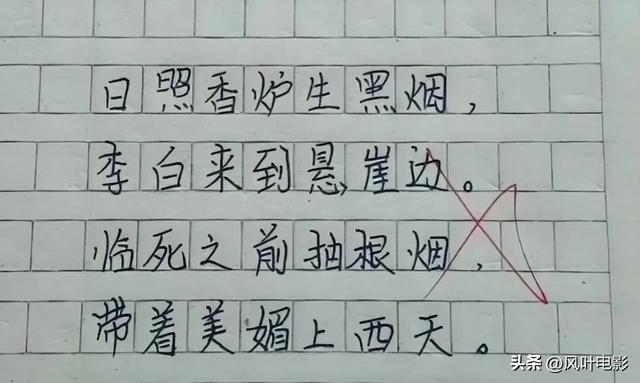 日照香炉生黑烟，
李白来到悬崖边。
临死之前抽根烟，
带着美媚上西天。
头条 @风叶电影